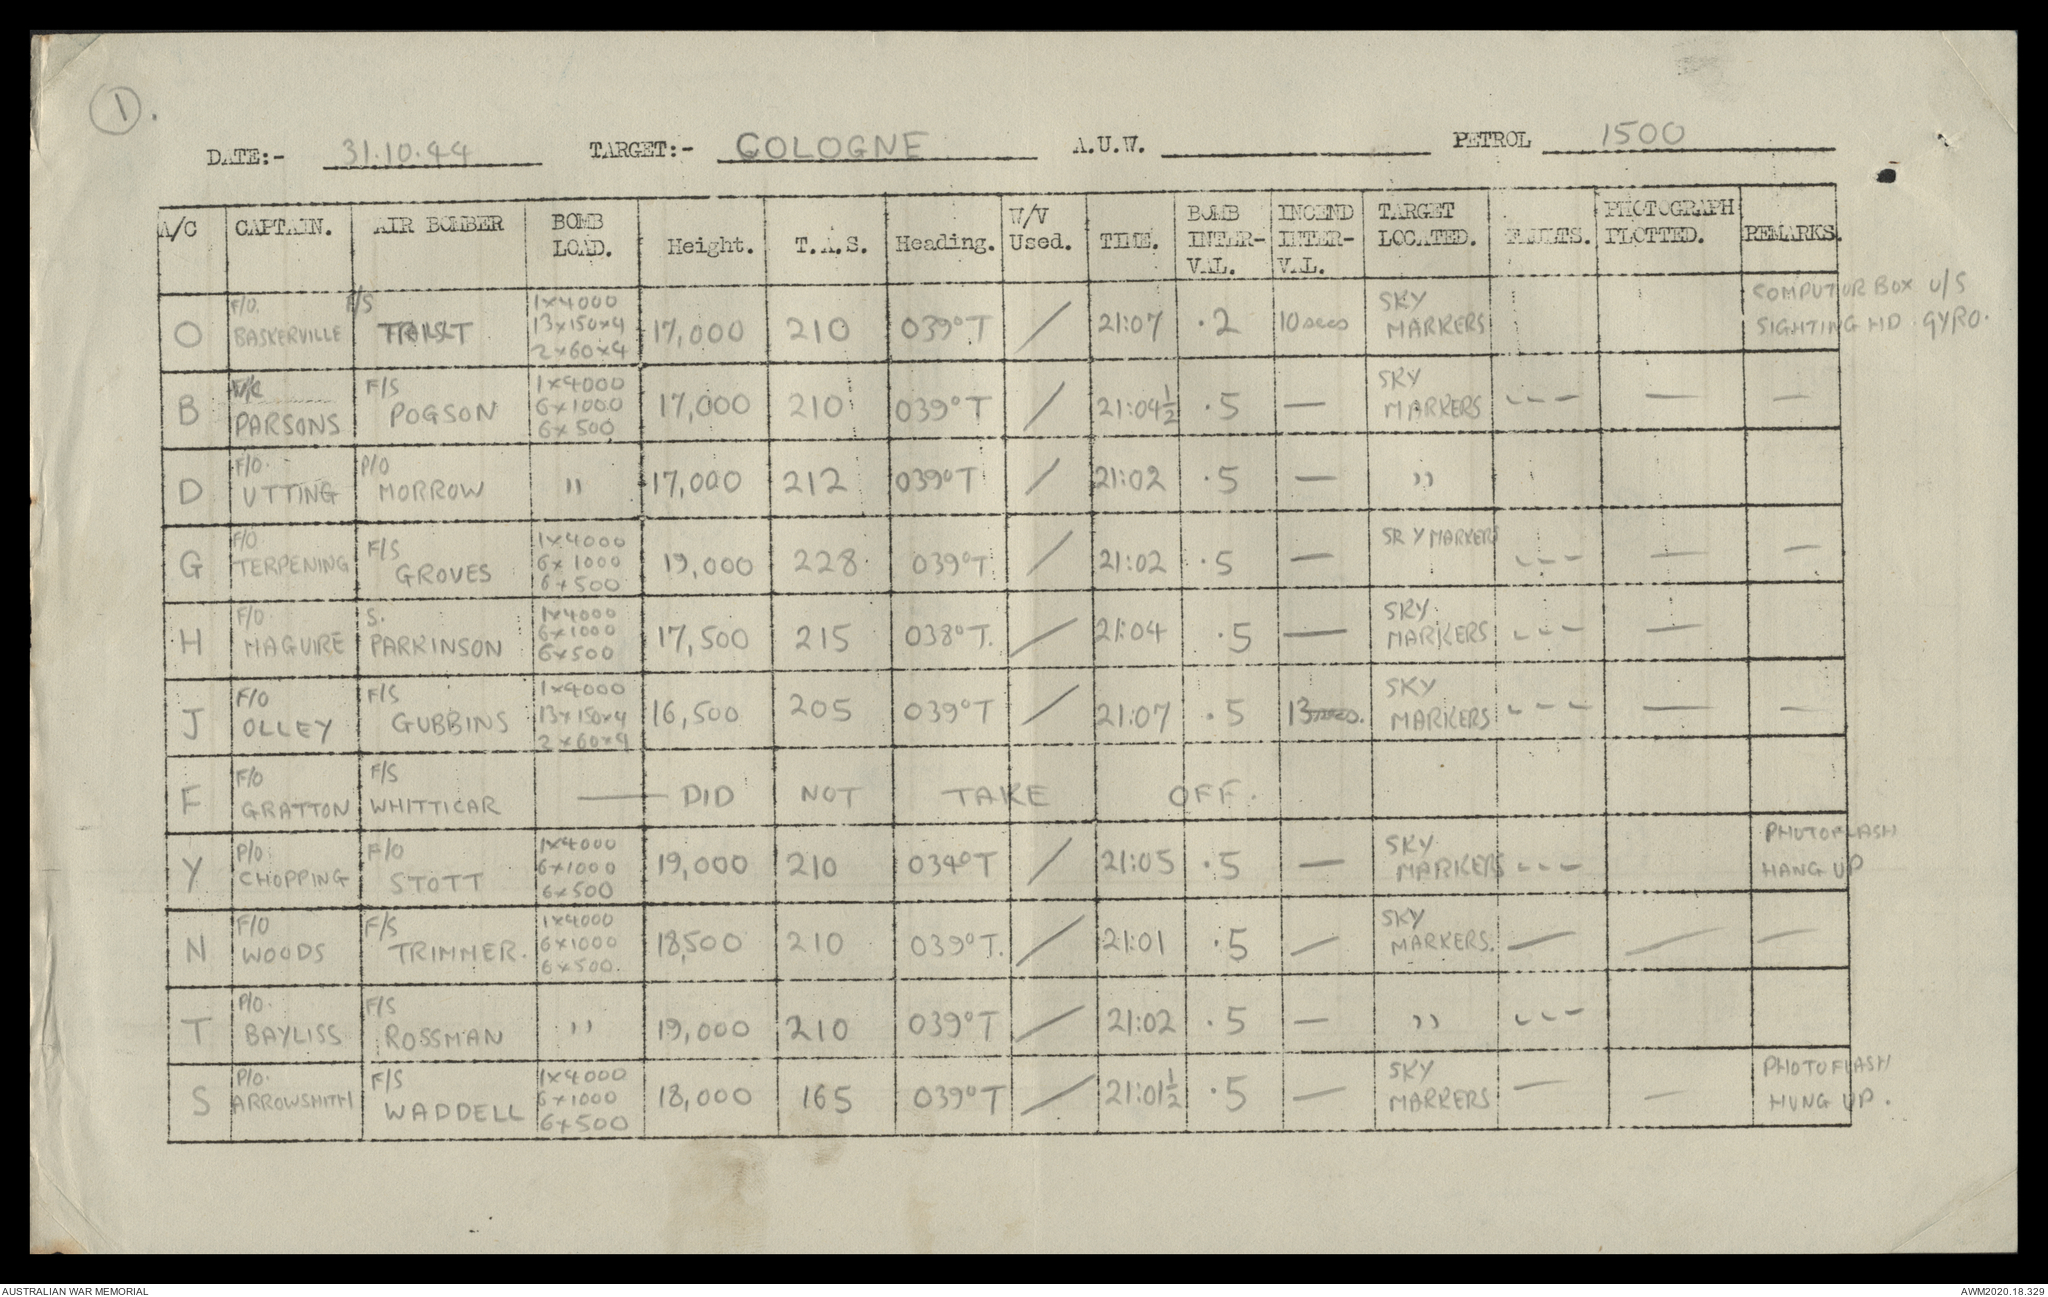 1.
DATE:- 31.10.44 TARGET:- COLOGNE A.U.W. PETROL 1500
A/C CAPTAIN. AIR BOMBER BOMB LOAD. Height. T.A.S. Heading. W/V Used. TIME. BOMB INTER-VAL. INCEND INTER-VAL. TARGET LOCATED. FAULTS. PHOTOGRAPH PLOTTED. REMARKS.
O F/O. BASKERVILLE F/S 1x4000 13x150x4 2x60x4 17,000 210 039°T / 21:07 .2 10 secs SKY MARKERS COMPUTOR BOX U/S SIGHTING HD. GYRO.
B PARSONS F/S POGSON 1x4000 6x1000 6x500 17,000 210 039°T / 21:04½ .5 — SKY MARKERS --- — —
D F/O. UTTING P/O MORROW " 17,000 212 039°T / 21:02 .5 — "
G F/O TERPENING F/S GROVES 1x4000 6x1000 6x500 19,000 228 039°T / 21:02 .5 — SKY MARKERS --- — —
H F/O MAGUIRE S. PARKINSON 1x4000 6x1000 6x500 17,500 215 038°T. / 21:04 .5 — SKY MARKERS --- —
J F/O OLLEY F/S GUBBINS 1x4000 13x150x4 2x60x4 16,500 205 039°T / 21:07 .5 13 secs. SKY MARKERS --- — —
F F/O GRATTON F/S WHITTICAR — DID NOT TAKE OFF.
Y P/O CHOPPING F/O STOTT 1x4000 6x1000 6x500 19,000 210 034°T / 21:05 .5 — SKY MARKERS --- PHOTOFLASH HANG UP
N F/O WOODS F/S TRIMMER. 1x4000 6x1000 6x500. 18,500 210 039°T. / 21:01 .5 — SKY MARKERS. — — —
T P/O. BAYLISS F/S ROSSMAN " 19,000 210 039°T / 21:02 .5 — " ---
S P/O. ARROWSMITH F/S WADDELL 1x4000 6x1000 6x500 18,000 165 039°T / 21:01½ .5 — SKY MARKERS — — PHOTOFLASH HUNG UP.
AUSTRALIAN WAR MEMORIAL AWM2020.18.329